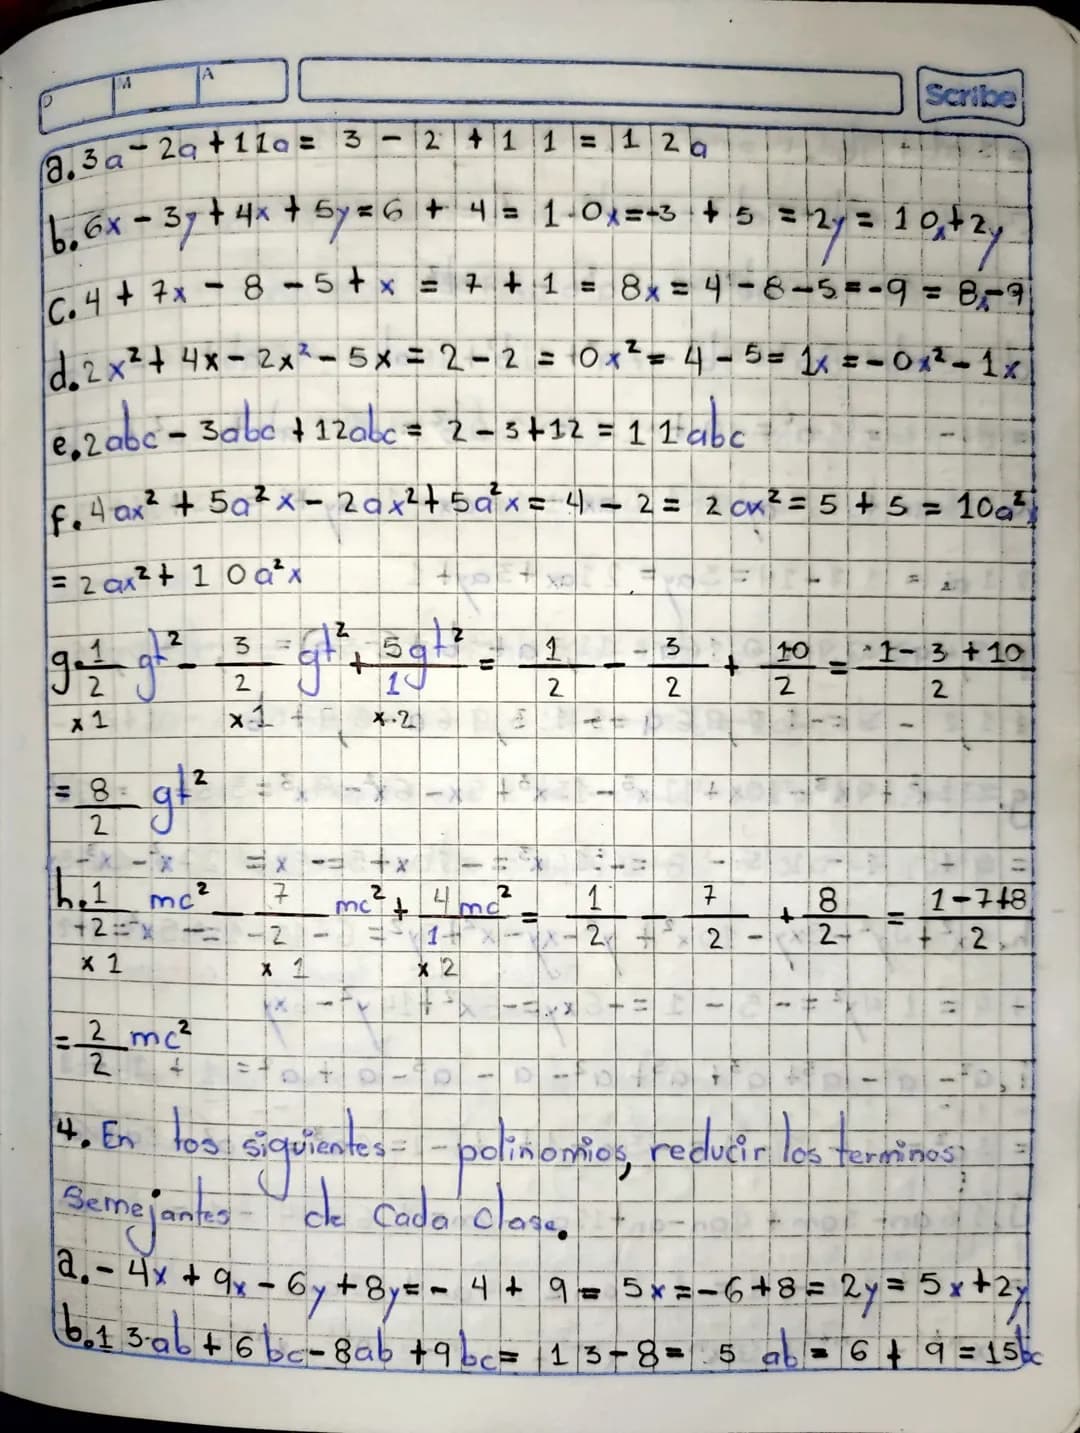 D M A Scribe
a. 3a - 2a + 11a = 3 - 2 + 11 = 12a
b. 6x - 3y + 4x + 5y = 6 + 4 = 10x = -3 + 5 = 2y = 10x + 2y
c. 4 + 7x - 8 - 5 + x = 7 + 1 = 8x = 4 - 8 - 5 = -9 = 8x - 9
d. 2x² + 4x - 2x² - 5x = 2 - 2 = 0x² = 4 - 5 = 1x = -0x² - 1x
e. 2abc - 3abc + 12abc = 2 - 3 + 12 = 11abc
f. 4ax² + 5a²x - 2ax² + 5a²x = 4 - 2 = 2ax² = 5 + 5 = 10a²x
= 2ax² + 10a²x
g. 1/2 gt² - 3/2 gt² + 5gt²/1 = 1/2 - 3/2 + 10/2 = 1 - 3 + 10/2
x1 x1 x2
= 8/2 gt²
h. 1/2 mc² - 7/2 mc² + 4mc²/1 = 1/2 - 7/2 + 8/2 = 1 - 7 + 8/2
x1 x1 x2
= 2/2 mc²
4. En los siguientes polinomios, reducir los terminos
Semejantes de Cada Clase.
a. - 4x + 9x - 6y + 8y = - 4 + 9 = 5x = -6 + 8 = 2y = 5x + 2y
b. 13ab + 6bc - 8ab + 9bc = 13 - 8 = 5ab = 6 + 9 = 15bc